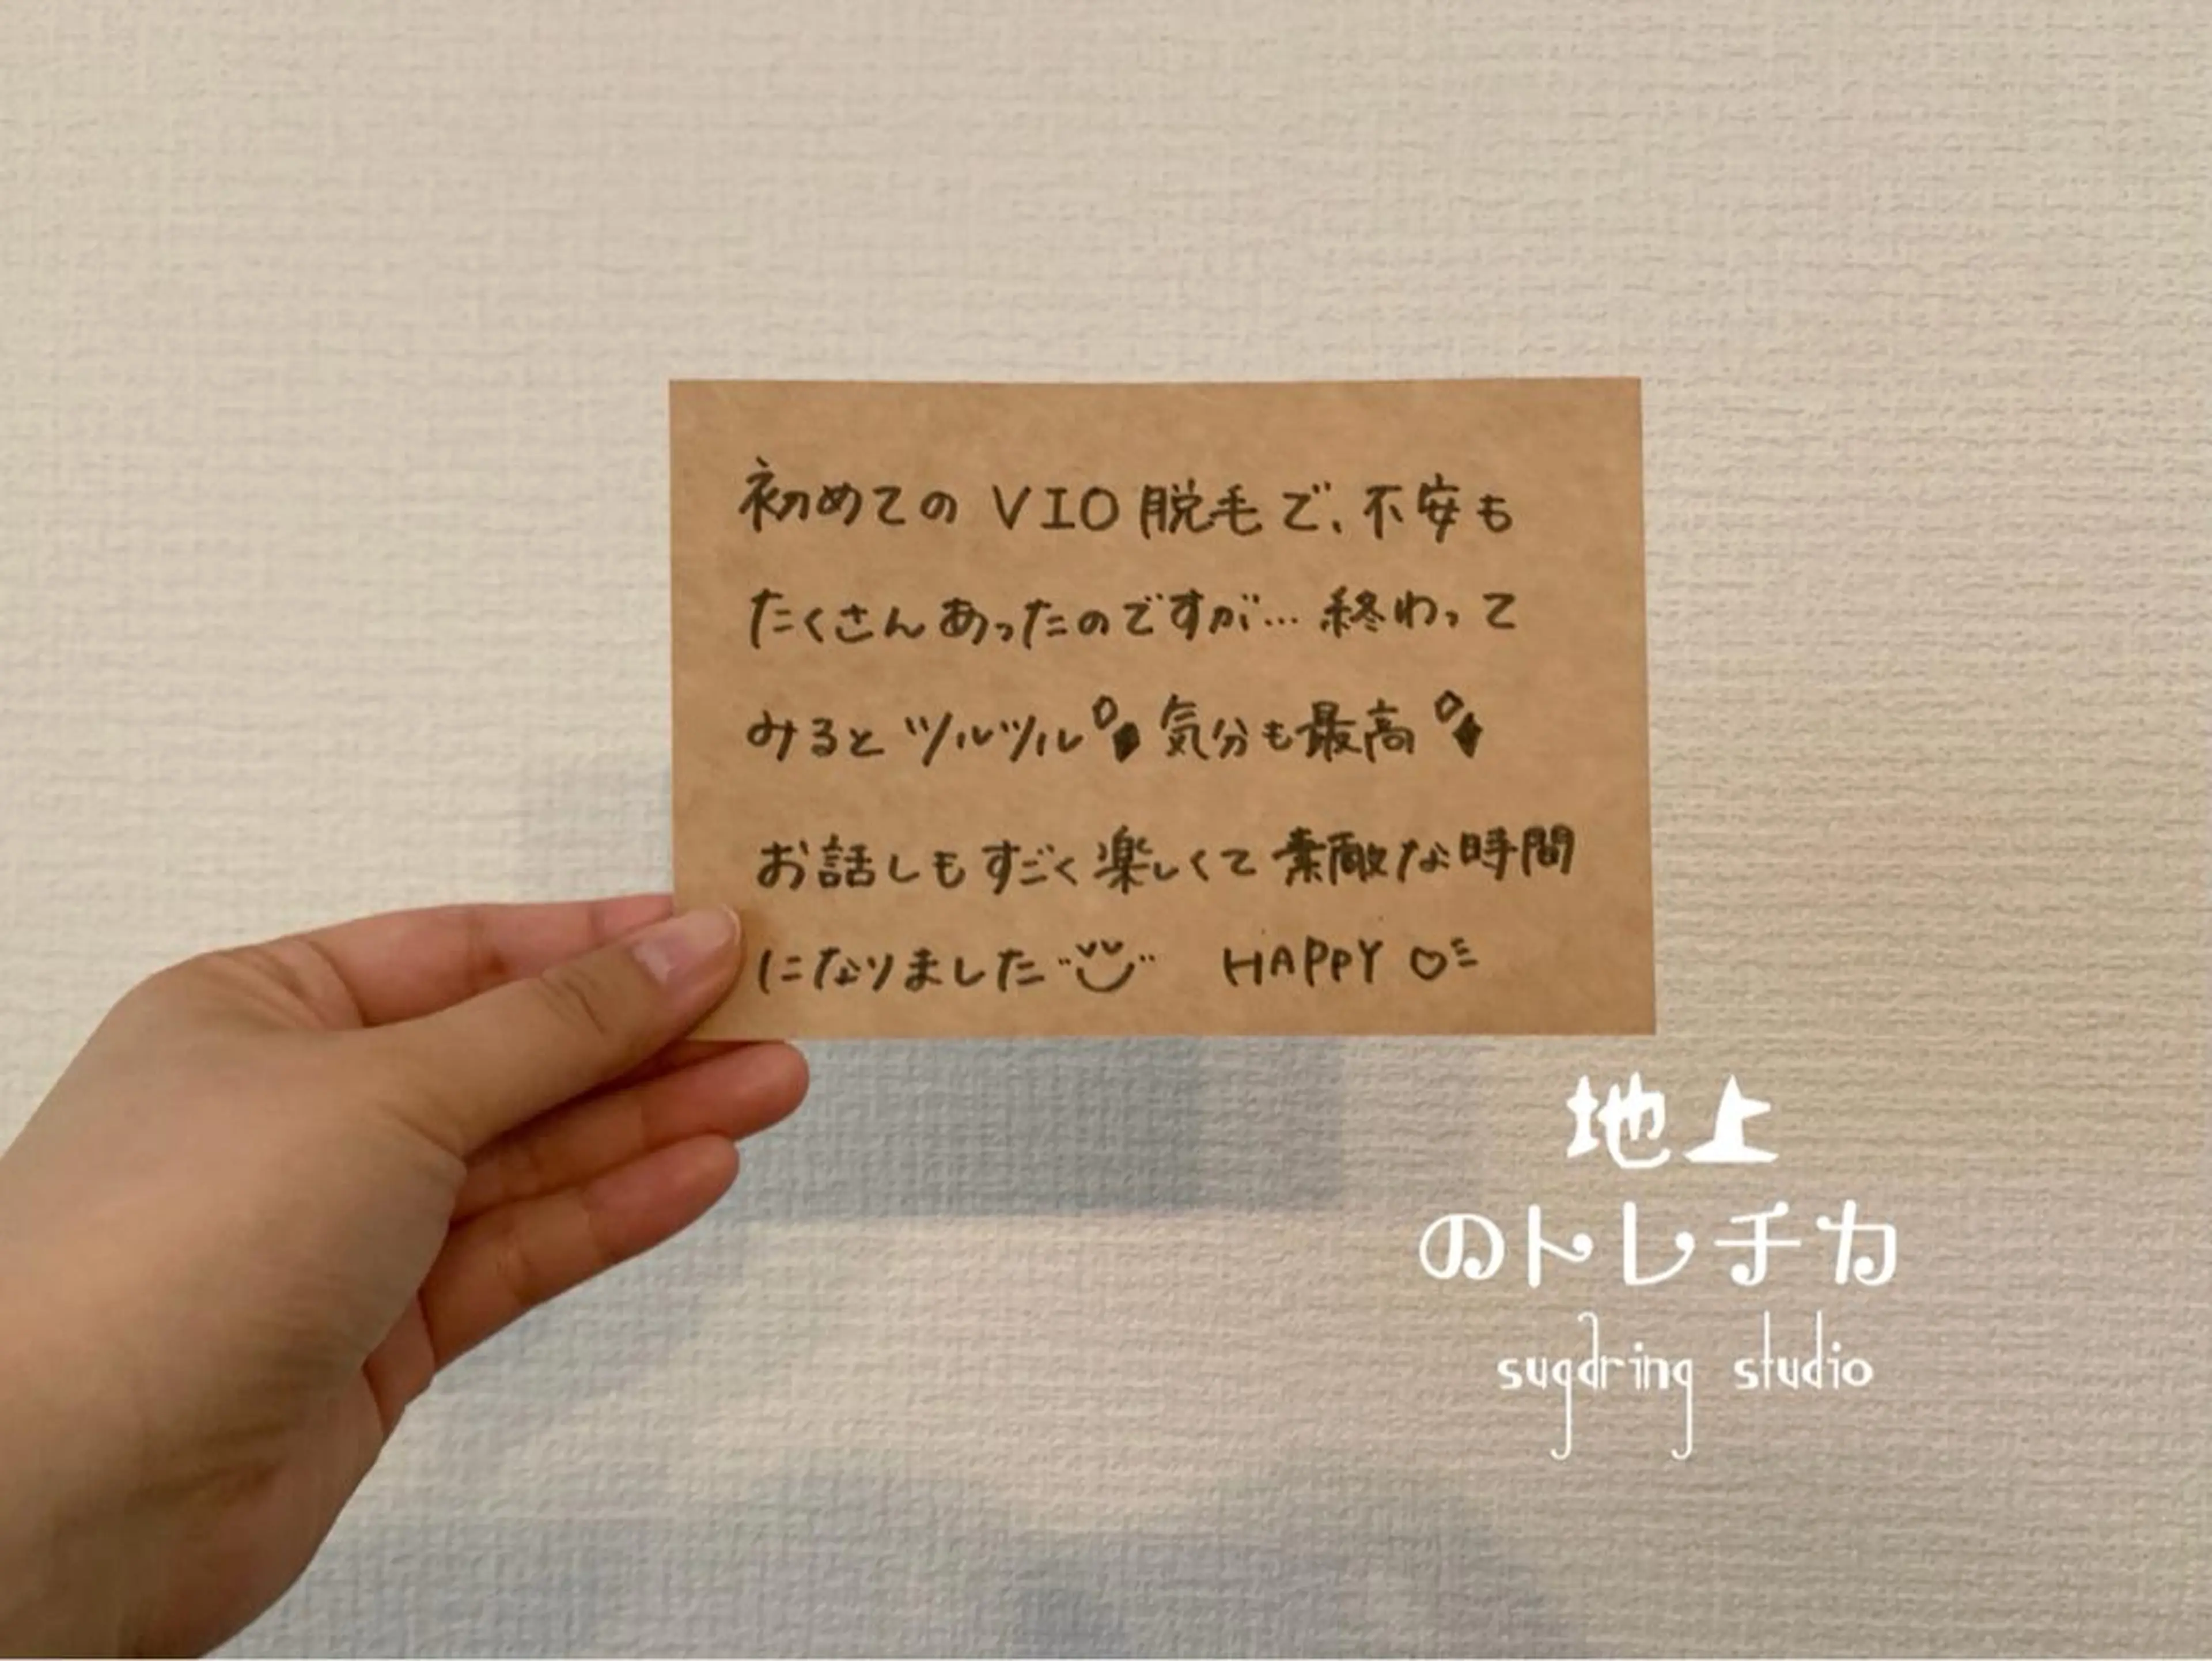 初めてのVIO脱毛で、不安も
たくさんあったのですが…終わって
みるとツルツル 気分も最高
お話しもすごく楽しくて素敵な時間
になりました HAPPY♡
地上
のトレチカ
sugaring studio